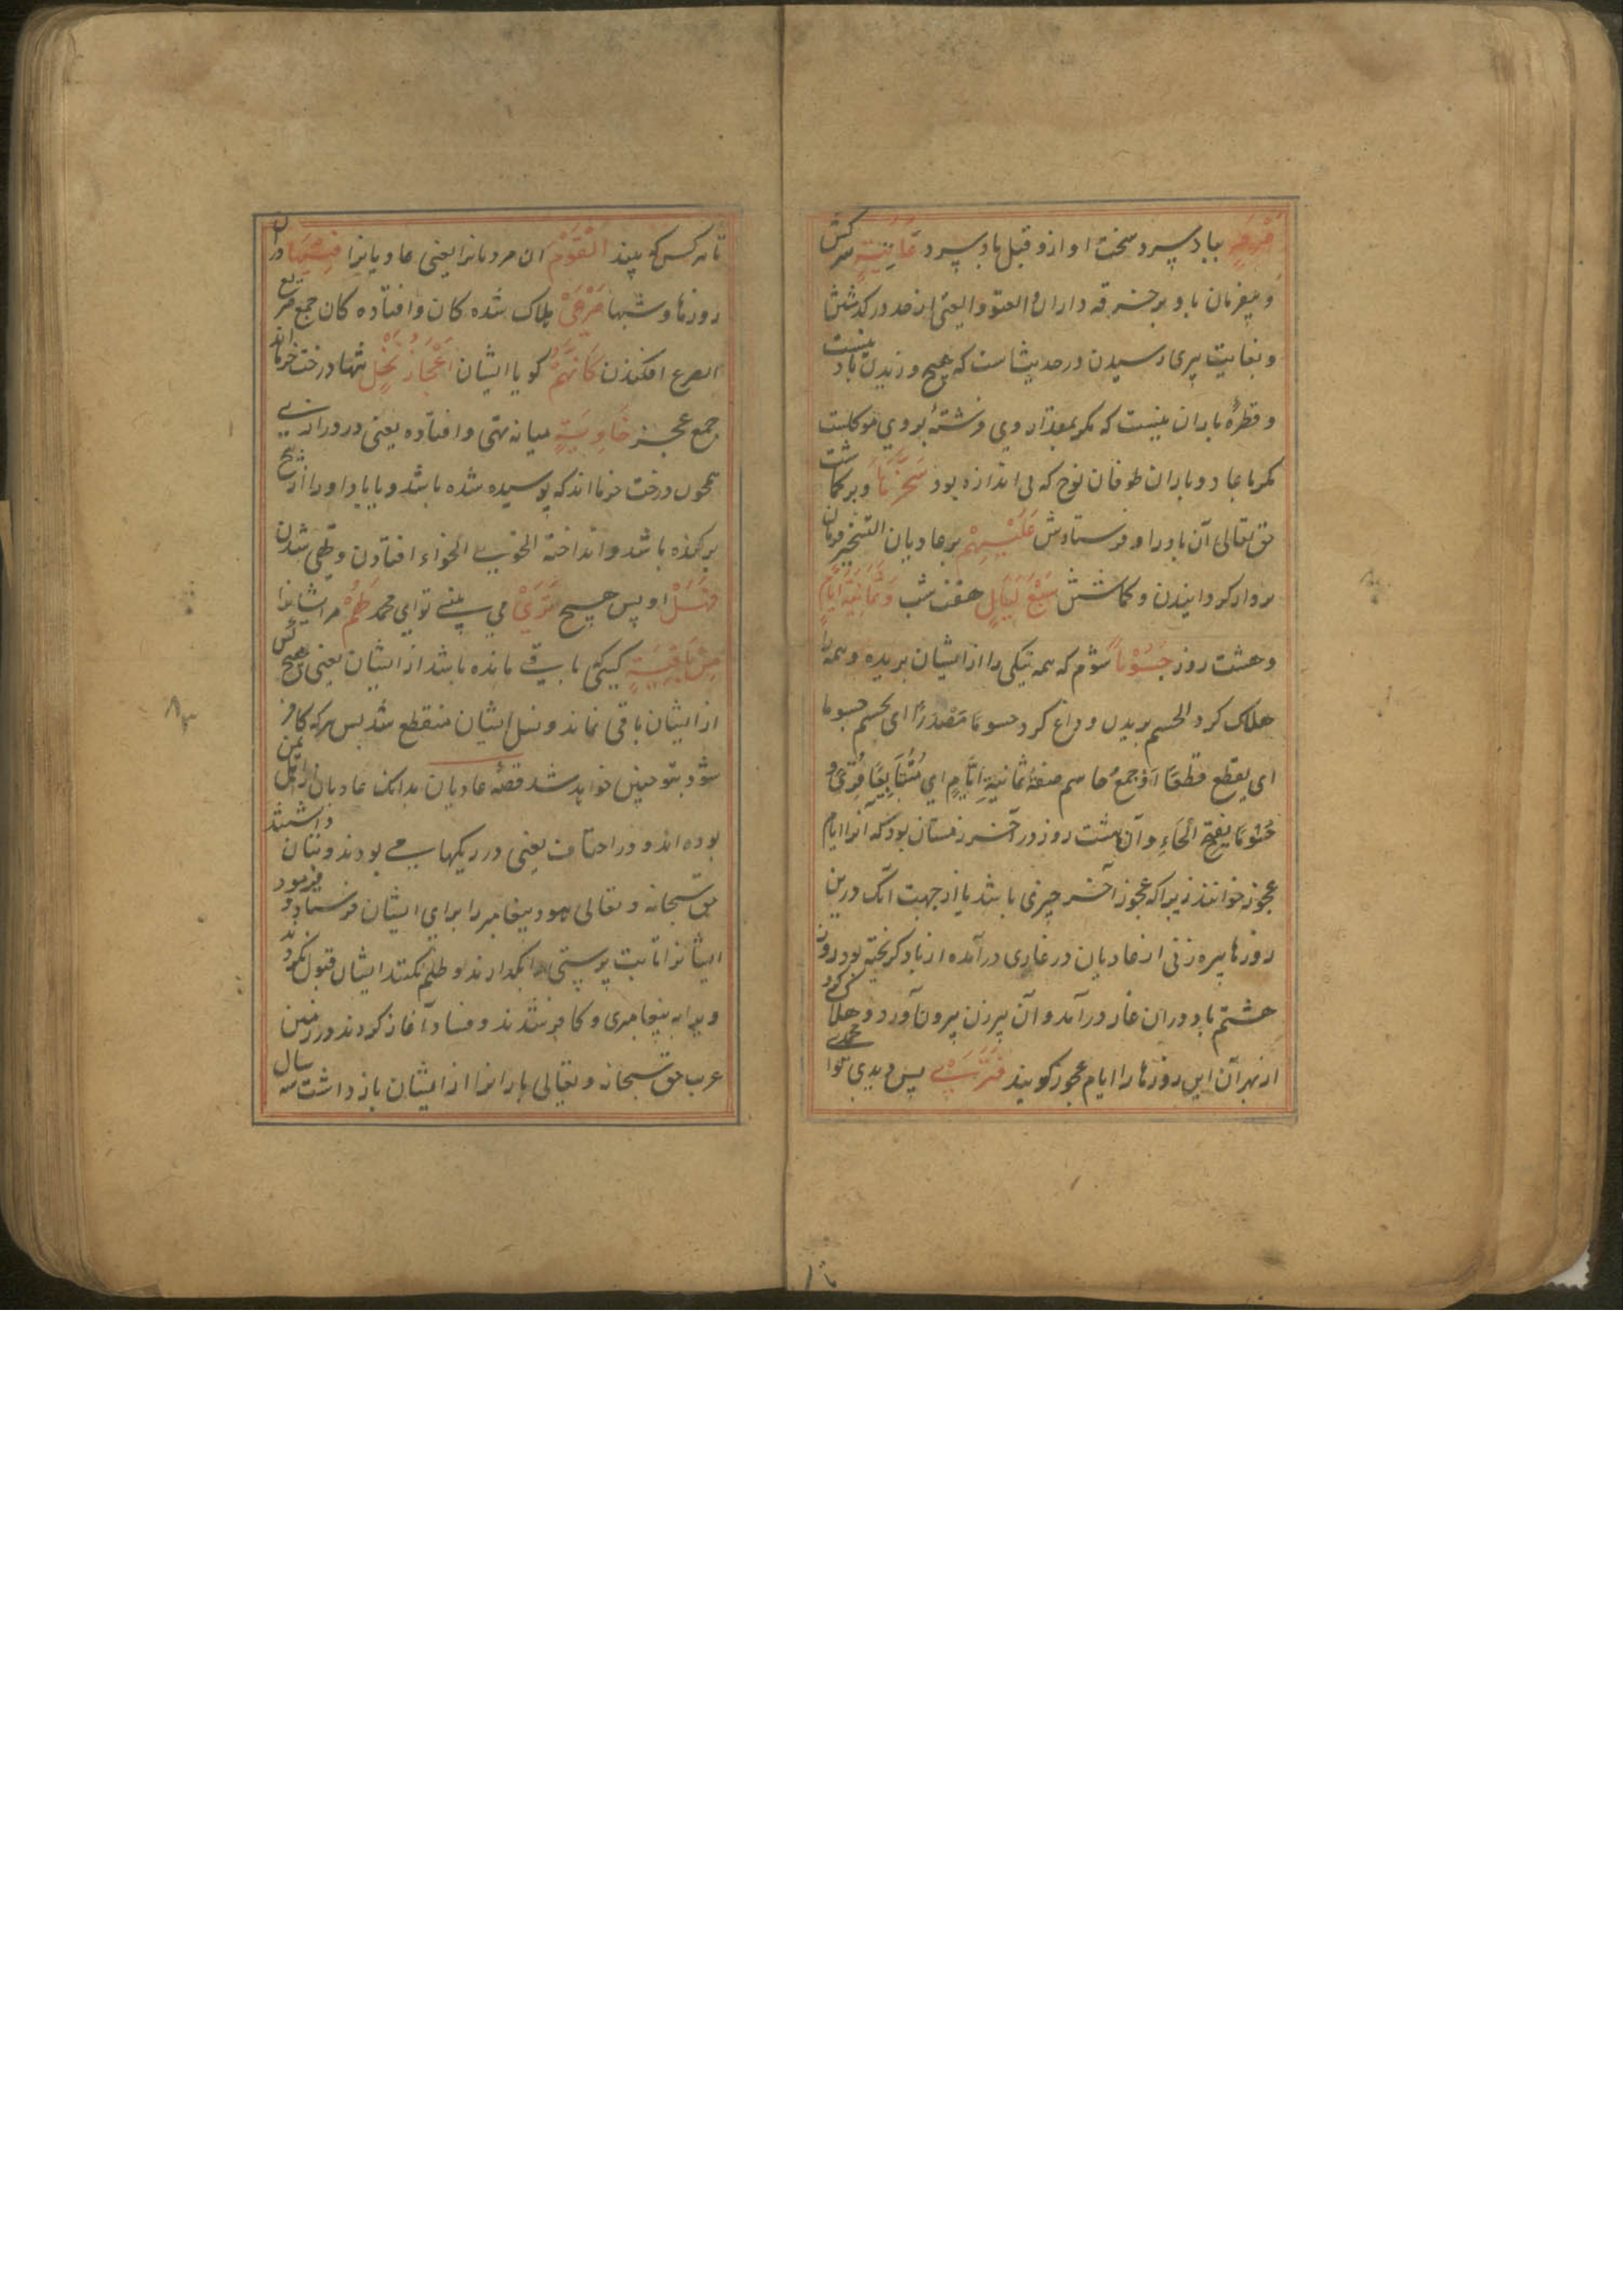 صَرْصَرٍ بباد سرد سخت اواز و قیل باد سرد عَاتِیَةٍ سرکش
و بیفرمان باد بر خزنه داران العتو والعتی از حد در گذشتن
و بغایت پیری رسیدن در حدیثاست که هیچ وزیدن باد نیست
و قطرهٔ باران نیست که مگر بمقدار وی فرشتهٔ بروی موکلست
مگر باد عاد و باران طوفان نوح که بی اندازه بود سَخَّرَهَا و برگماشت
حق تعالی آن باد را و فرستادش عَلَیْهِمْ بر عادیان التسخیر فرمان
بردار گردانیدن و گماشتن سَبْعَ لَیَالٍ هفت شب وَثَمَانِیَةَ اَیَّامٍ
و هشت روز حُسُوْمًا شوم که همه نیکی را از ایشان بریده و همه را
هلاک کرد الحسم بریدن و داغ کردن حسومًا مَصْدَرًا ای یحسم حسوما
ای یقطع قطعًا اَوْ جمعُ حاسم صفةُ ثمانیةِ اَیَّامٍ ای مُتَتَابِعًا و قُرِئَ
حَسُومًا بفتح الحَاءِ و آن هشت روز در آخر زمستان بود که آنرا ایام
عجوز خوانند زیرا که عجوز آخر چیزی باشد یا از جهت انک درین
روزها پیره زنی از عادیان در غاری درآمده از باد گریخته بود روز
هشتم باد دران غار درآمد و آن پیرزن بیرون آورد و هلاک کرد
از بهر آن این روزها را ایام عجوز گویند فَتَرَی پس دیدی تو ای محمد
تا هر کس که بیند الْقَوْمَ آن مردمانرا یعنی عادیانرا فِیْهَا دران
روزها و شبها صَرْعَیْ هلاک شده کان و افتاده کان جمع صریع
الصرع افکندن کَاَنَّهُمْ گویا ایشان اَعْجَازُ نَخْلٍ تنهاء درخت خرما اند
جمع عجز خَاوِیَةٍ میانه تهی و افتاده یعنی در درازی
همچون درخت خرما اند که پوسیده شده باشد و یا باد او را از بیخ
برکنده باشد و انداخته الخوی الخواء افتادن و تهی شدن
فَهَلْ او پس هیچ تَرَیْ می بینی تو ای محمد لَهُمْ مر ایشانرا
مِنْ بَاقِیَةٍ کسی باقی مانده باشد از ایشان یعنی هیچ کس
از ایشان باقی نماند و نسل ایشان منقطع شد پس هر که کافر
شود بتو چنین خواهد شد قصهٔ عادیان بدانک عادیان از اهل یمن
بوده اند و در احقاف یعنی در ریگها می بودند و بتان داشتند
حق سبحانه و تعالی هود پیغامبر را برای ایشان فرستاد و فرمود
ایشانرا تا بت پرستی بگذارند و ظلم نکنند ایشان قبول نکردند
و ویرا به پیغامبری و کافر شدند و فساد آغاز کردند در زمین
عرب حق سبحانه و تعالی بارانرا از ایشان باز داشت سه سال